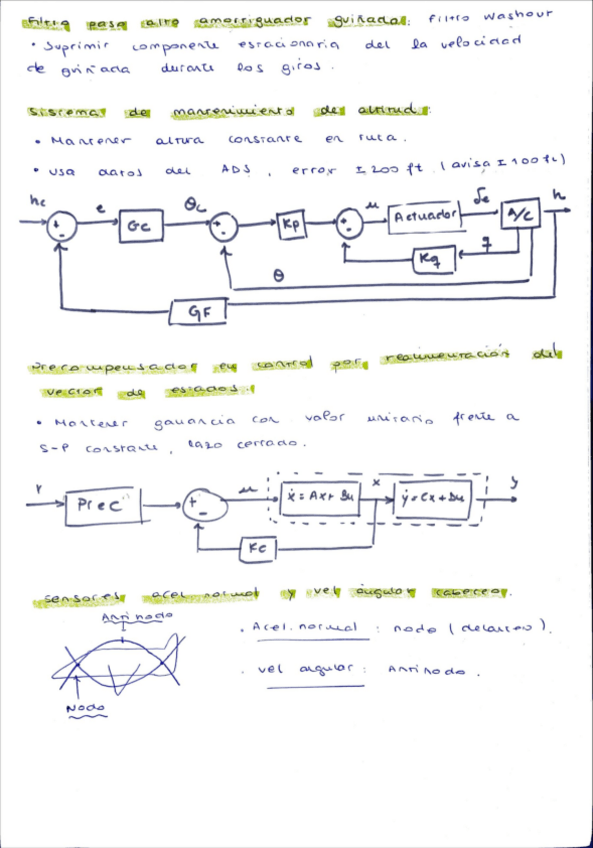 Filtro pasa alto amortiguador guiñada: Filtro Washout
• Suprimir componente estacionaria del la velocidad
de guiñada durante los giros.
Sistema de mantenimiento de altitud:
• Mantener altura constante en ruta.
• Usa datos del ADS, error ± 200 ft (avisa ± 100 ft)
hc
e
Gc
θc
Kp
u
Actuador
δe
A/C
h
+
-
+
-
+
-
Kq
q
θ
GF
Precompensador en control por realimentación del
vector de estados:
• Mantener ganancia con valor unitario frente a
S-P constante, lazo cerrado.
r
Prec
+
-
u
ẋ = Ax + Bu
x
ẏ = Cx + Du
y
Kc
Sensores acel normal y vel angular cabeceo.
Antinodo
• Acel. normal : nodo (delantero).
• Vel angular : Antinodo.
Nodo